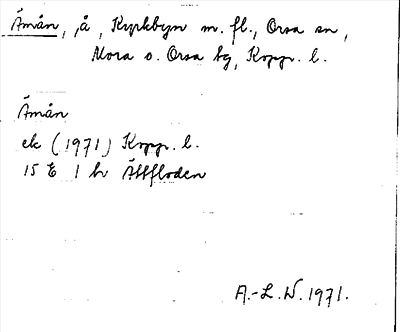 Ämån, å, Kyrkbyn m. fl., Orsa sn,
Mora o. Orsa bg, Kopp. l.
Ämån
ek (1971) Kopp. l.
15 E 1 h Ältfloden
A.-L. W. 1971.